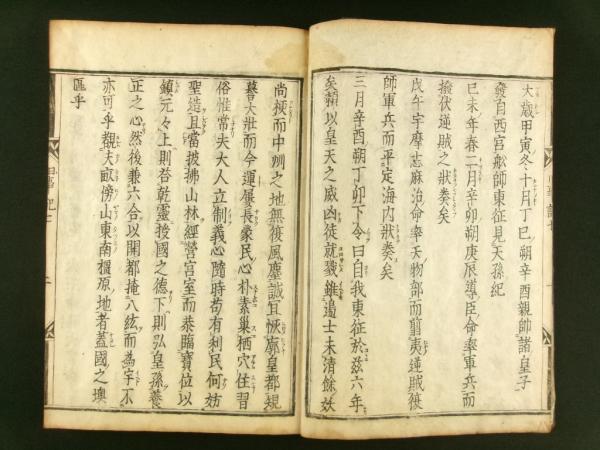 大歳甲寅冬十月丁巳朔辛酉親帥諸皇子
發自西宮舩師東征見天孫紀
巳未年春二月辛卯朔庚辰導臣命率軍兵而
撥伏逆賊之狀奏矣
戊午宇摩志麻治命率天物部而翦夷逆賊復
師軍兵而平定海内狀奏矣
三月辛酉朔丁卯下令曰自我東征於兹六年
矣頼以皇天之威凶徒就戮雖邊土未清餘妖
尚梗而中州之地無復風塵誠宜恢廓皇都規
摹大壯而今運屬長象民心朴素巢栖穴住習
俗惟常夫大人立制義心隨時苟有利民何妨
聖造且當披拂山林經營宮室而恭臨寶位以
鎮元々上則答乾靈授國之德下則弘皇孫養
正之心然後兼六合以開都掩八紘而為宇不
亦可乎觀夫畝傍山東南橿原地者蓋國之墺
區乎